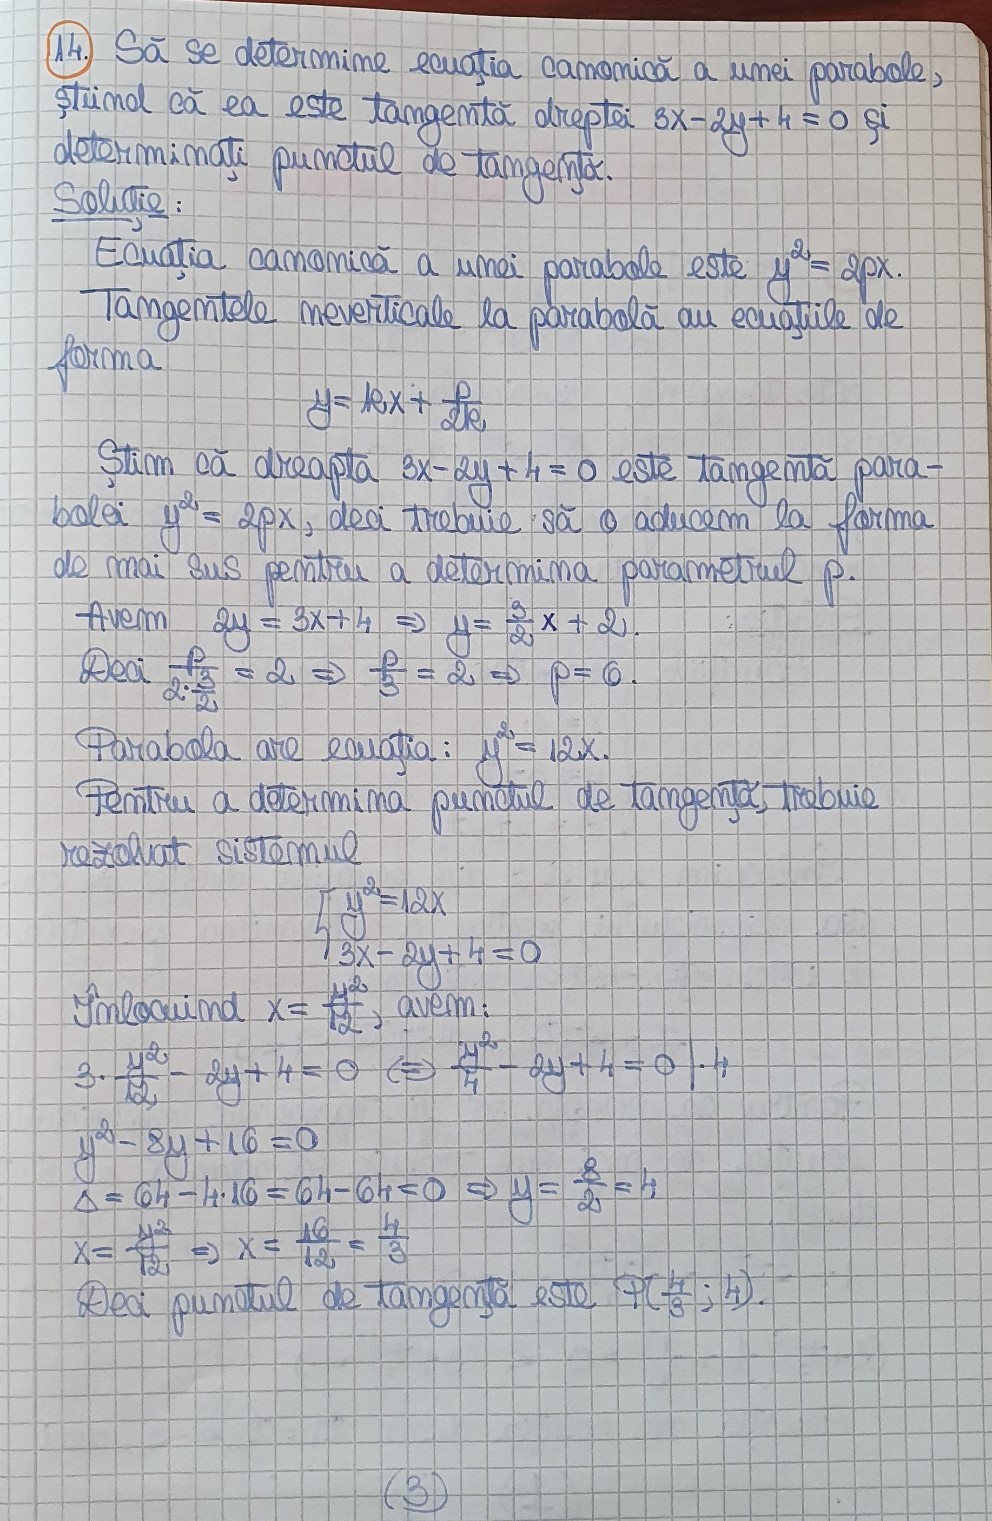 14. Să se determine ecuația canonică a unei parabole,
știind că ea este tangentă dreptei 3x-2y+4=0 și
determinați punctul de tangență.
Soluție:
Ecuația canonică a unei parabole este y²=2px.
Tangentele neverticale la parabolă au ecuațiile de
forma
y=kx+p/2k
Știm că dreapta 3x-2y+4=0 este tangentă para-
bolei y²=2px, deci trebuie să o aducem la forma
de mai sus pentru a determina parametrul p.
Avem 2y=3x+4 ⇒ y=3/2 x+2.
Deci p/(2·3/2)=2 ⇒ p/3=2 ⇒ p=6.
Parabola are ecuația: y²=12x.
Pentru a determina punctul de tangență, trebuie
rezolvat sistemul
{ y²=12x
3x-2y+4=0
Înlocuind x=y²/12, avem:
3·y²/12-2y+4=0 ⇔ y²/4-2y+4=0 |·4
y²-8y+16=0
Δ=64-4·16=64-64=0 ⇒ y=8/2=4
x=y²/12 ⇒ x=16/12=4/3
Deci punctul de tangență este T(4/3; 4).
(3)